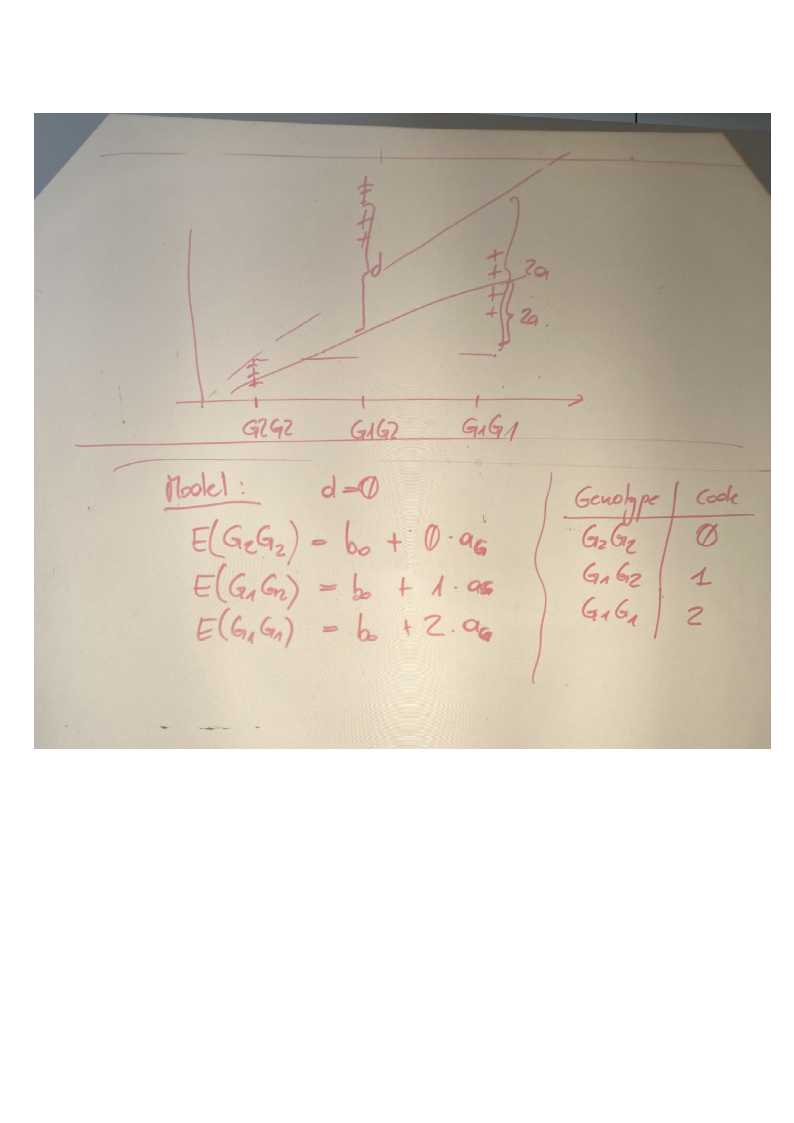 d
2a
2a
G2G2 G1G2 G1G1
Model: d=0
E(G2G2) = b0 + 0·aG
E(G1G2) = b0 + 1·aG
E(G1G1) = b0 + 2·aG
Genotype Code
G2G2 0
G1G2 1
G1G1 2